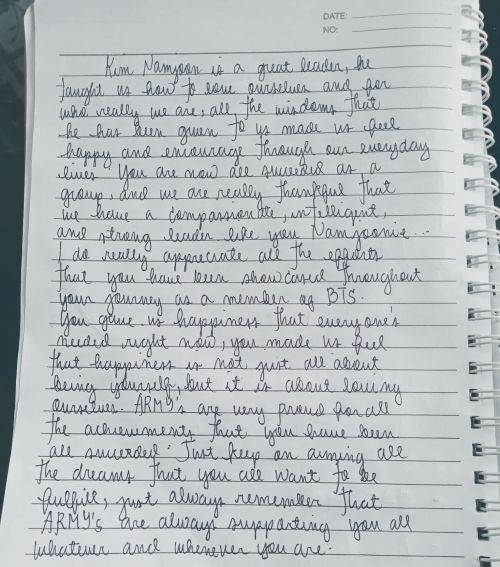 DATE:
NO:
Kim Namjoon is a great leader, he
taught us how to love ourselves and for
who really we are, all the wisdoms that
he has been given to us made us feel
happy and encourage through our everyday
lives. You are now all succeed as a
group, and we are really thankful that
we have a compassionate, intelligent,
and strong leader like you Namjoonie...
I do really appreciate all the efforts
that you have been showcased throughout
your journey as a member of BTS.
You give us happiness that everyone's
needed right now, you made us feel
that happiness is not just all about
being yourself, but it is about loving
ourselves. ARMY's are very proud for all
the achievements that you have been
all succeeded. Just keep on aiming all
the dreams that you all want to be
fulfill, just always remember that
ARMY's are always supporting you all
whatever and whenever you are.